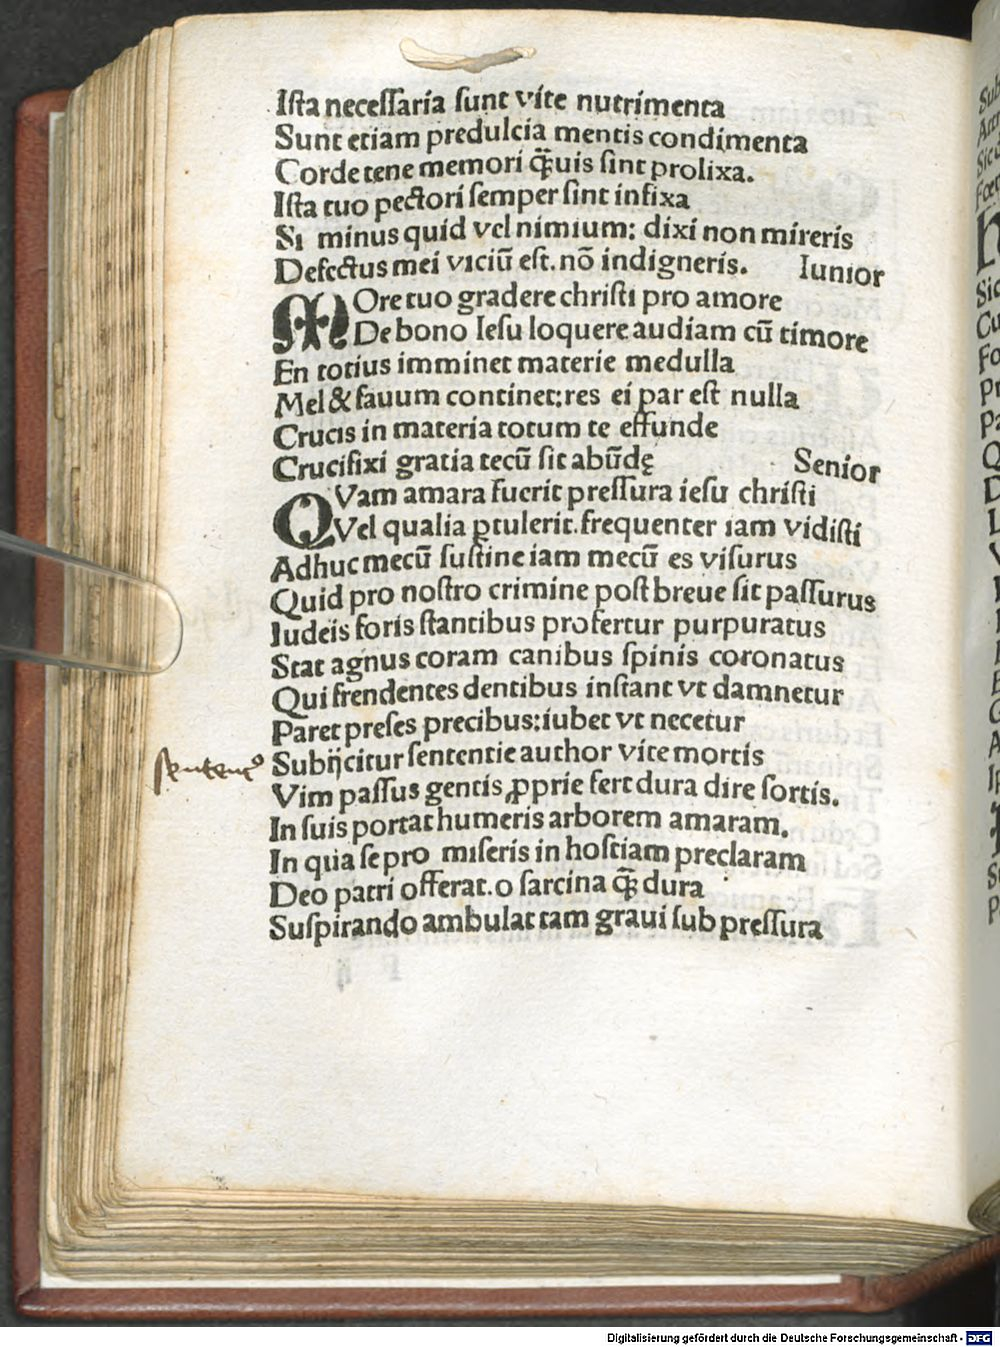 Iſta neceſſaria ſunt vite nutrimenta
Sunt etiam predulcia mentis condimenta
Corde tene memori q̃uis ſint prolixa.
Iſta tuo pectori ſemper ſint infixa
Si minus quid vel nimium: dixi non mireris
Defectus mei viciū eſt. nō indigneris. Iunior
MOre tuo gradere chriſti pro amore
De bono Ieſu loquere audiam cū timore
En totius imminet materie medulla
Mel & fauum continet: res ei par eſt nulla
Crucis in materia totum te effunde
Crucifixi gratia tecū ſit abūdę Senior
QVam amara fuerit preſſura ieſu chriſti
Vel qualia ꝑtulerit. frequenter iam vidiſti
Adhuc mecū ſuſtine iam mecū es viſurus
Quid pro noſtro crimine poſt breue ſit paſſurus
Iudeis foris ſtantibus profertur purpuratus
Stat agnus coram canibus ſpinis coronatus
Qui frendentes dentibus inſtant vt damnetur
Paret preſes precibus: iubet vt necetur
Subijcitur ſententie author vite mortis
Vim paſſus gentis ꝓprie fert dura dire ſortis.
In ſuis portat humeris arborem amaram.
In qua ſe pro miſeris in hoſtiam preclaram
Deo patri offerat. o ſarcina q̃ dura
Suſpirando ambulat tam graui ſub preſſura
Digitalisierung gefördert durch die Deutsche Forschungsgemeinschaft - DFG